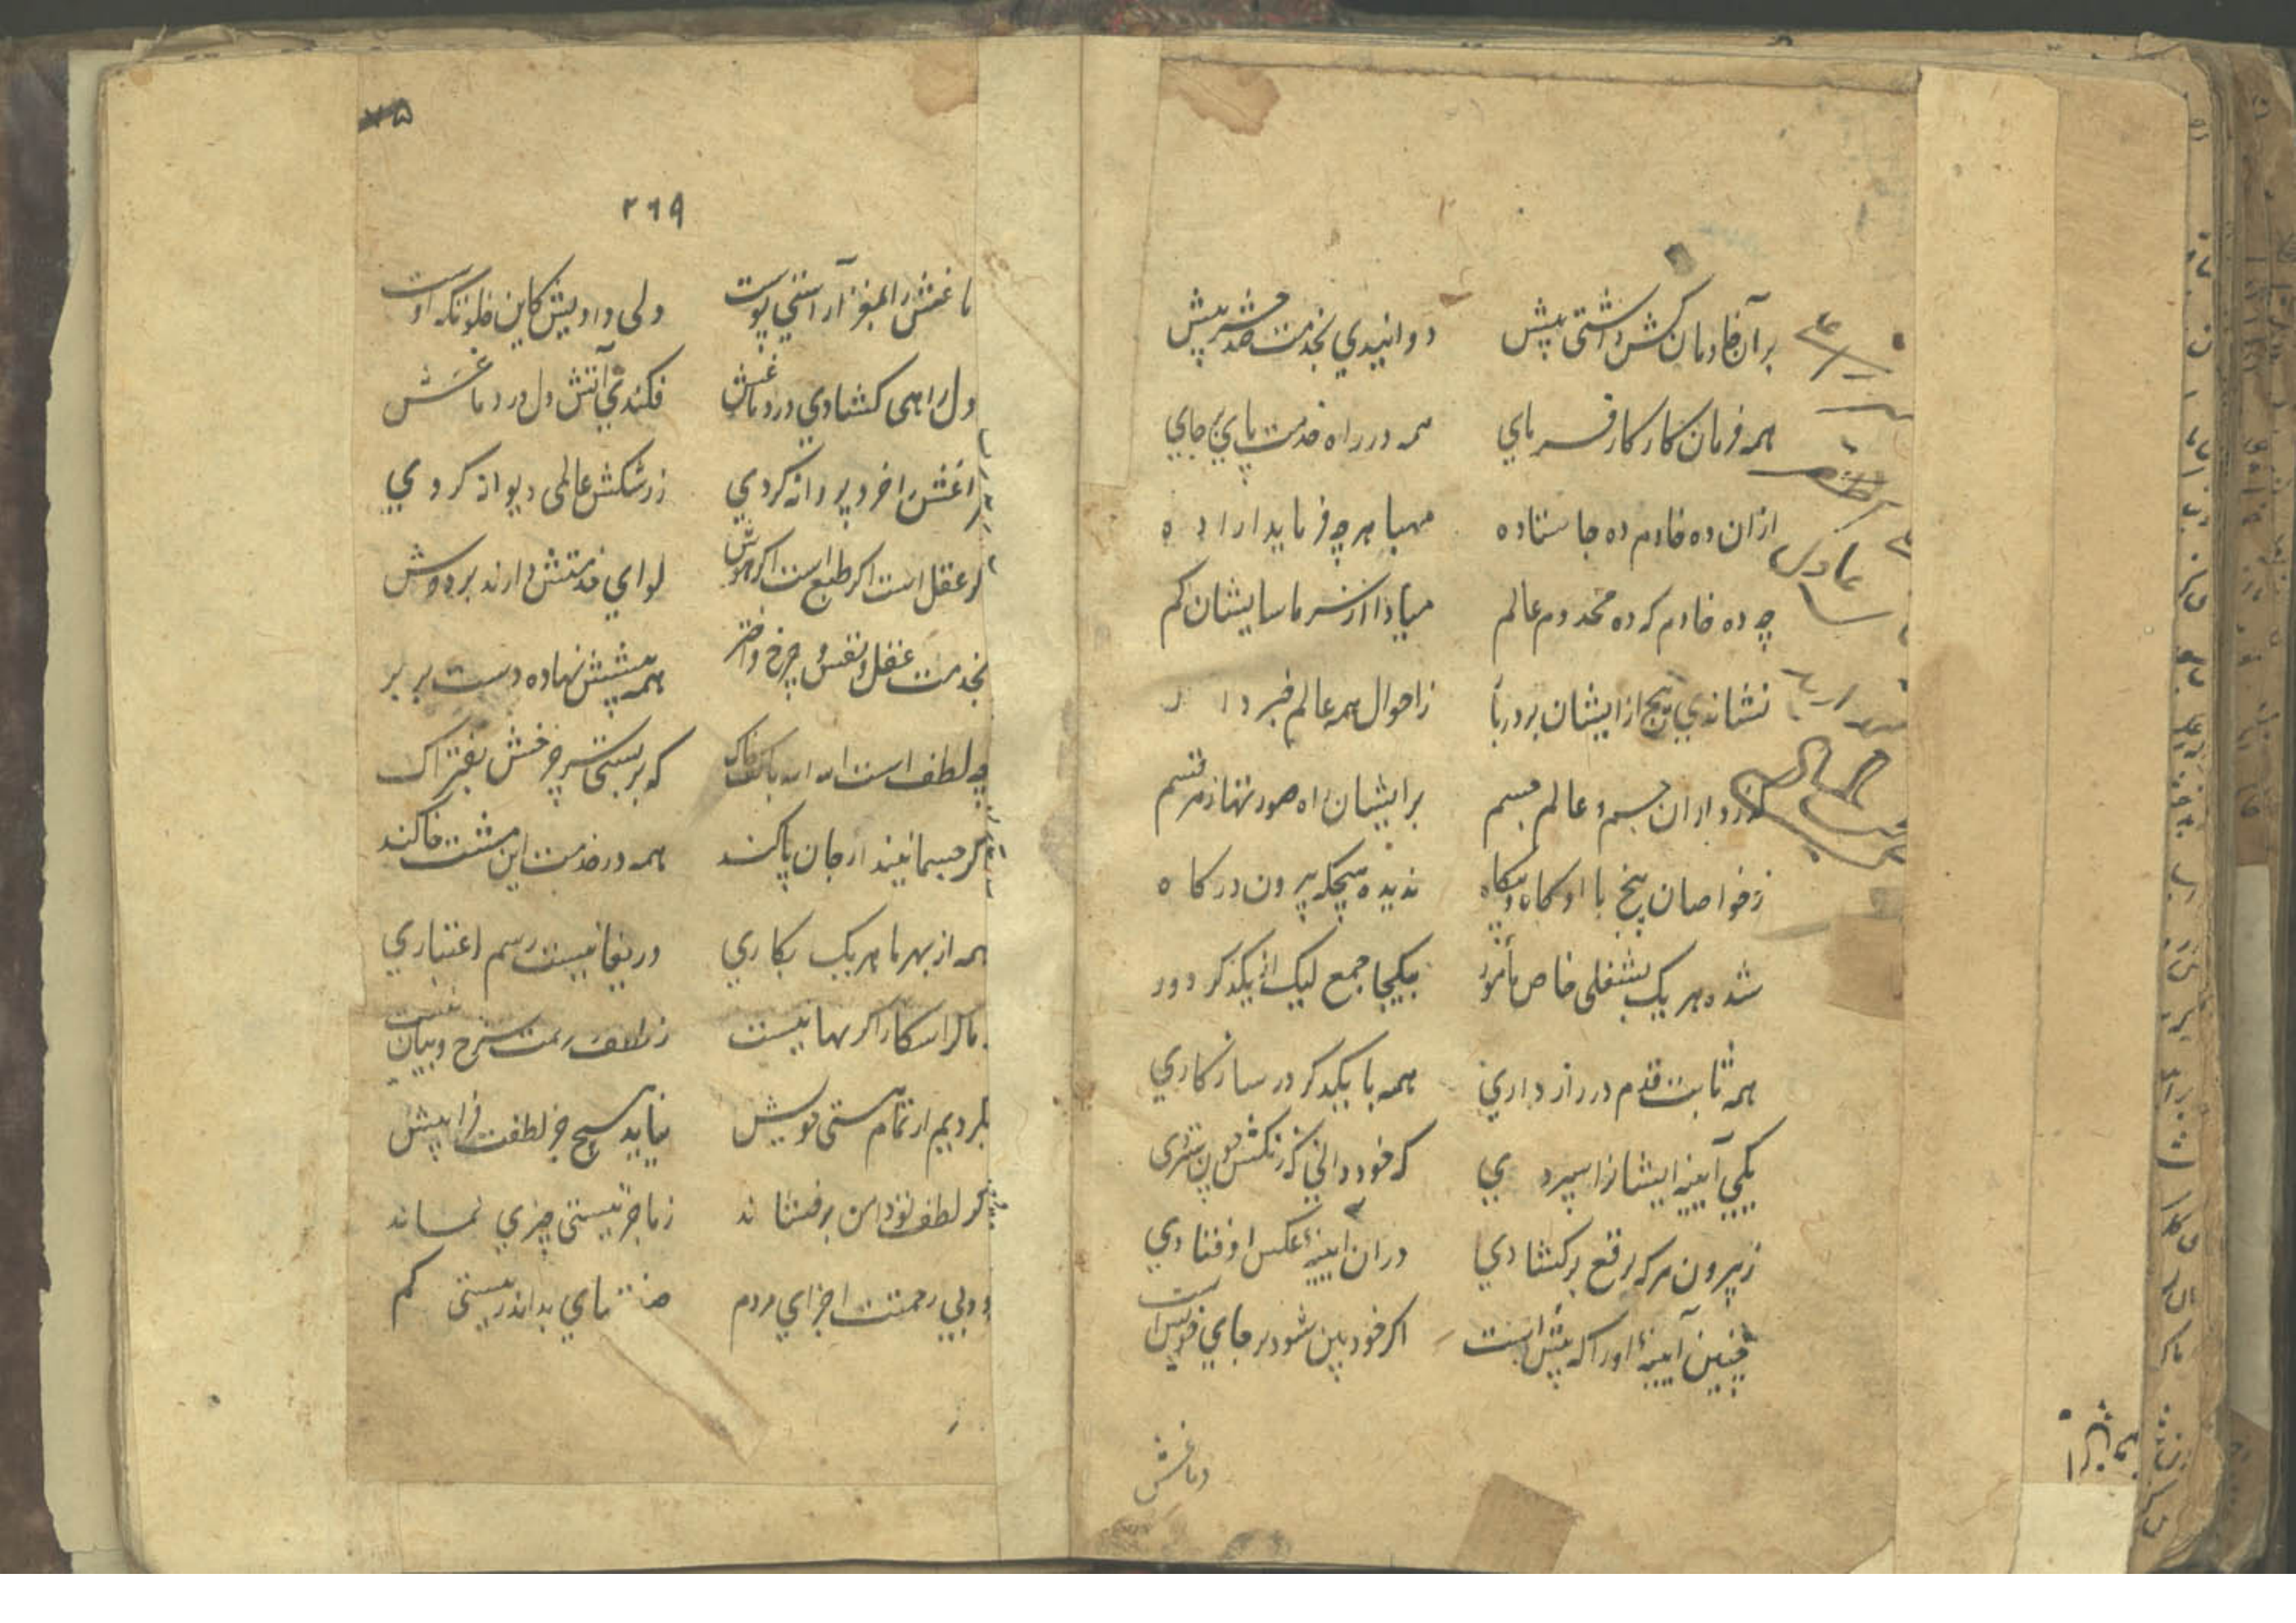 بر آن خادمان کش داشتی پیش دوانیدی بخدمت صد حشر بیش
همه فرمان کار کارفرمای همه در راه خدمت پای بر جای
ازان ده خادم ده جا ستاده مهیا هر چه فرماید اراده
چه ده خادم که ده مخدوم عالم مبادا از سر ما سایشان کم
نشاندی پنج از ایشان بر در بار ز احوال همه عالم خبردار
جسم و عالم جسم بر ایشان راه صورتها ز هر قسم
ز خواصان پنج با او گاه و بیگاه ندیده هیچکه بیرون درگاه
شده هر یک بشغلی خاص مأمور بیکجا جمع لیک از یکدگر دور
همه ثابت قدم در رازداری همه با یکدگر در سازگاری
یکی آیینه ایشانرا سپردی که خود دانی که زنگش چون ستردی
ز بیرون هر که برقع برگشادی در ان آیینه عکس او فتادی
چنین آیینهٔ او را که پیش است اگر خودبین شود بر جای خویش است
دماغش
۲۶۹
ماغش را بمغز آراستی پوست ولی دادیش کاین خلوتگه اوست
دل راهی گشادی در دماغش فکندی آتش دل در دماغش
اغش را خرد پروانه کردی ز رشکش عالمی دیوانه کردی
عقل است اگر طبع است اگر هوش لوای خدمتش دارند بر دوش
بخدمت عقل و نفس و چرخ و اختر همه پیشش نهاده دست بر بر
چه لطف است الله الله با کف خاک که بربستی سر چرخش بفتراک
گر جسمانیند ار جان پاکند همه در خدمت این مشت خاکند
همه از بهر ما هر یک بکاری دریغا نیست رسم اعتباری
ز لطف رحمت شرح و بیان نیست
هستی خویش نیاید هیچ جز لطفت فرا پیش
گر لطف تو دامن برفشاند ز ما جز نیستی چیزی نماند
بی رحمتت اجزای مردم ماند در نیستی گم